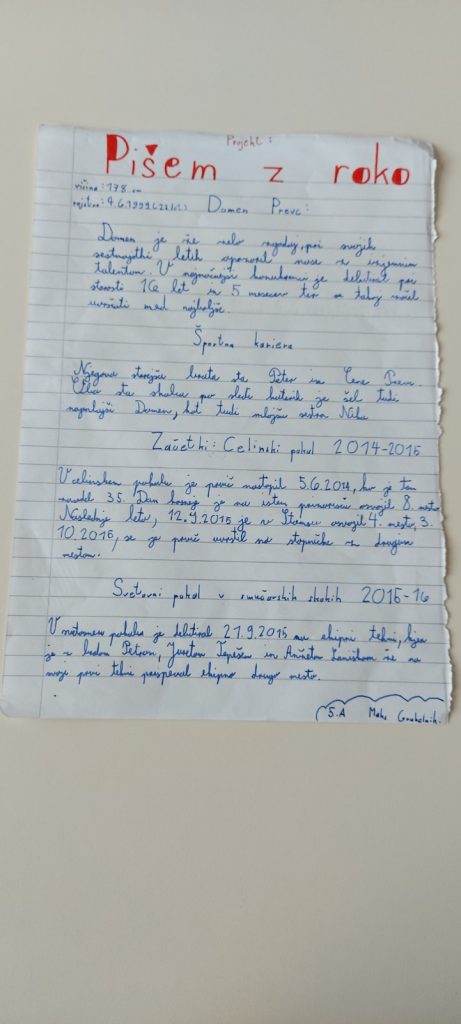 Projekt:
Pišem z roko
višina: 178 cm
rojstvo: 4.6.1999 (22 let) Domen Prevc:
Domen je že zelo zgodaj, pri svojih
letih opozoril nase z izjemnim
talentom. V konkurenci je debitiral pri
starosti 16 let in 5 mesecev ter se takoj začel
uvrščati med najboljše.
Športna kariera
Njegova starejša brata sta Peter in Cene Prevc.
Oba sta skakalca po sledi katerih je šel tudi
najmlajši Domen, kot tudi mlajša sestra Nika
Začetki: Celinski pokal 2014-2015
V celinskem pokalu je prvič nastopil 5.6.2014, ko je tam
35. Dan kasneje je na istem prizorišču osvojil 8. mesto
Naslednje leto, 12.9.2015 je v osvojil 4. mesto, 3.
10.2015, se je prvič uvrstil na stopničke z drugim
mestom.
Svetovni pokal v smučarskih skokih 2015-16
V svetovnem pokalu je debitiral 21.9.2015 na ekipni tekmi, kjer
je z bratom Petrom, Juretom Tepešem in Anžetom Laniškom že na
svoji prvi tekmi ekipno drugo mesto.
5.A Maks